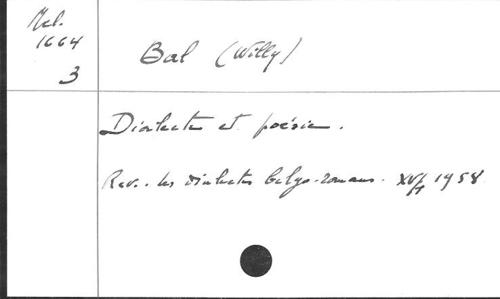 Mel.
1664
3
Bal (Willy)
Dialecte et poésie.
Rev. les dialectes belgo-romans. 1958